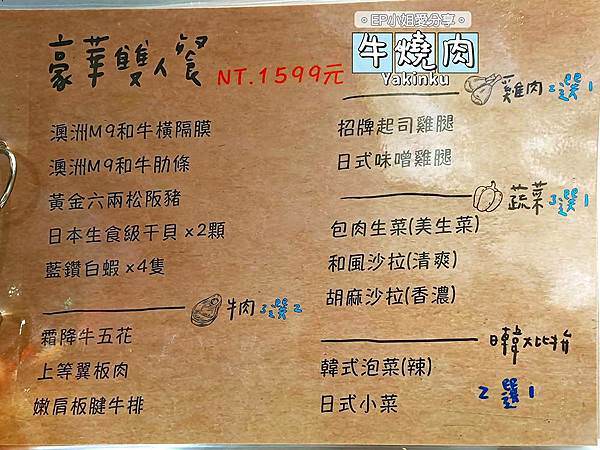 。EP小姐愛分享。
牛燒肉
Yakinku
豪華雙人餐 NT.1599元
澳洲M9和牛橫隔膜
澳洲M9和牛肋條
黃金六兩松阪豬
日本生食級干貝 x2顆
藍鑽白蝦 x4隻
牛肉 3選2
霜降牛五花
上等翼板肉
嫩肩板腱牛排
雞肉 2選1
招牌起司雞腿
日式味噌雞腿
蔬菜 3選1
包肉生菜(美生菜)
和風沙拉(清爽)
胡麻沙拉(香濃)
日韓大比拚
韓式泡菜(辣)
日式小菜
2選1